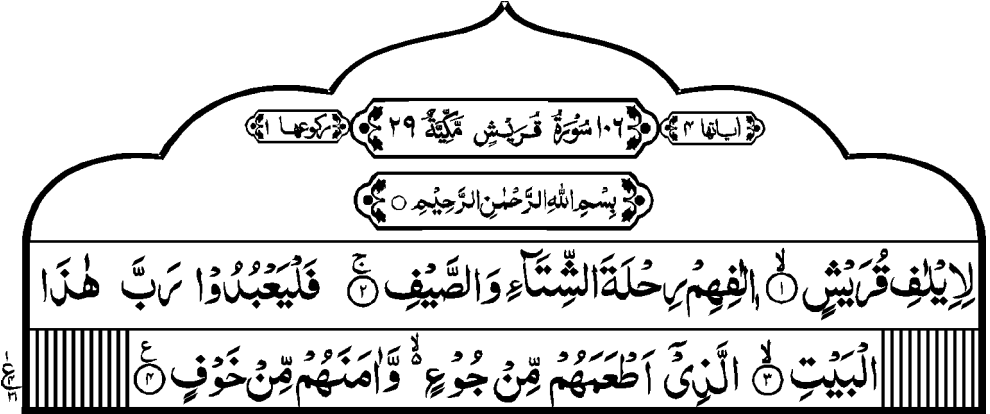 اٰیاتها ۴ ۱۰۶ سُوْرَةُ قُرَیْشٍ مَّكِّیَّةٌ ۲۹ رکوعها ۱
بِسْمِ اللّٰهِ الرَّحْمٰنِ الرَّحِیْمِ ○
لِاِیْلٰفِ قُرَیْشٍ ۙ‏﴿۱﴾ اٖلٰفِهِمْ رِحْلَةَ الشِّتَآءِ وَالصَّیْفِ ۚ‏﴿۲﴾ فَلْیَعْبُدُوْا رَبَّ هٰذَا
الْبَیْتِ ۙ‏﴿۳﴾ الَّذِیْۤ اَطْعَمَهُمْ مِّنْ جُوْعٍ ۙ۬ وَّاٰمَنَهُمْ مِّنْ خَوْفٍ ﴿۴﴾ ع